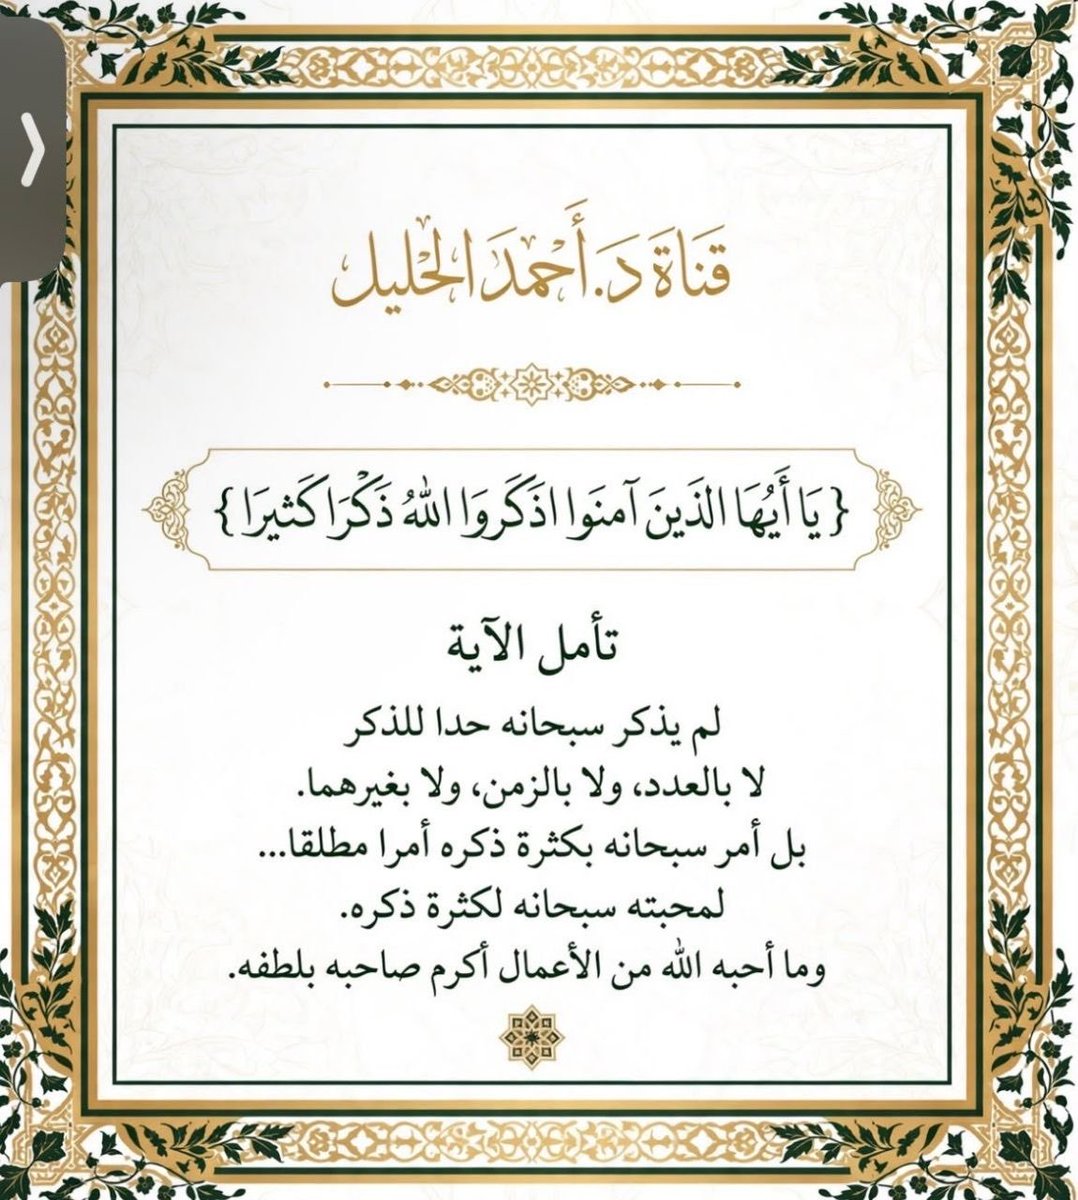 قَنَاةَ دَ.أَحْمَدَ الخَليل
{يَا أَيُهَا الذَينَ آمنَوا اذَكَروَا اللهُ ذَكْرَا كَثيرَا}
تأمل الآية
لم يذكر سبحانه حدا للذكر
لا بالعدد، ولا بالزمن، ولا بغيرهما.
بل أمر سبحانه بكثرة ذكره أمرا مطلقا...
لمحبته سبحانه لكثرة ذكره.
وما أحبه الله من الأعمال أكرم صاحبه بلطفه.